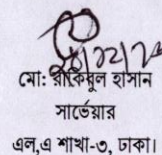 মো: রাকিবুল হাসান
সার্ভেয়ার
এল,এ শাখা-৩, ঢাকা।